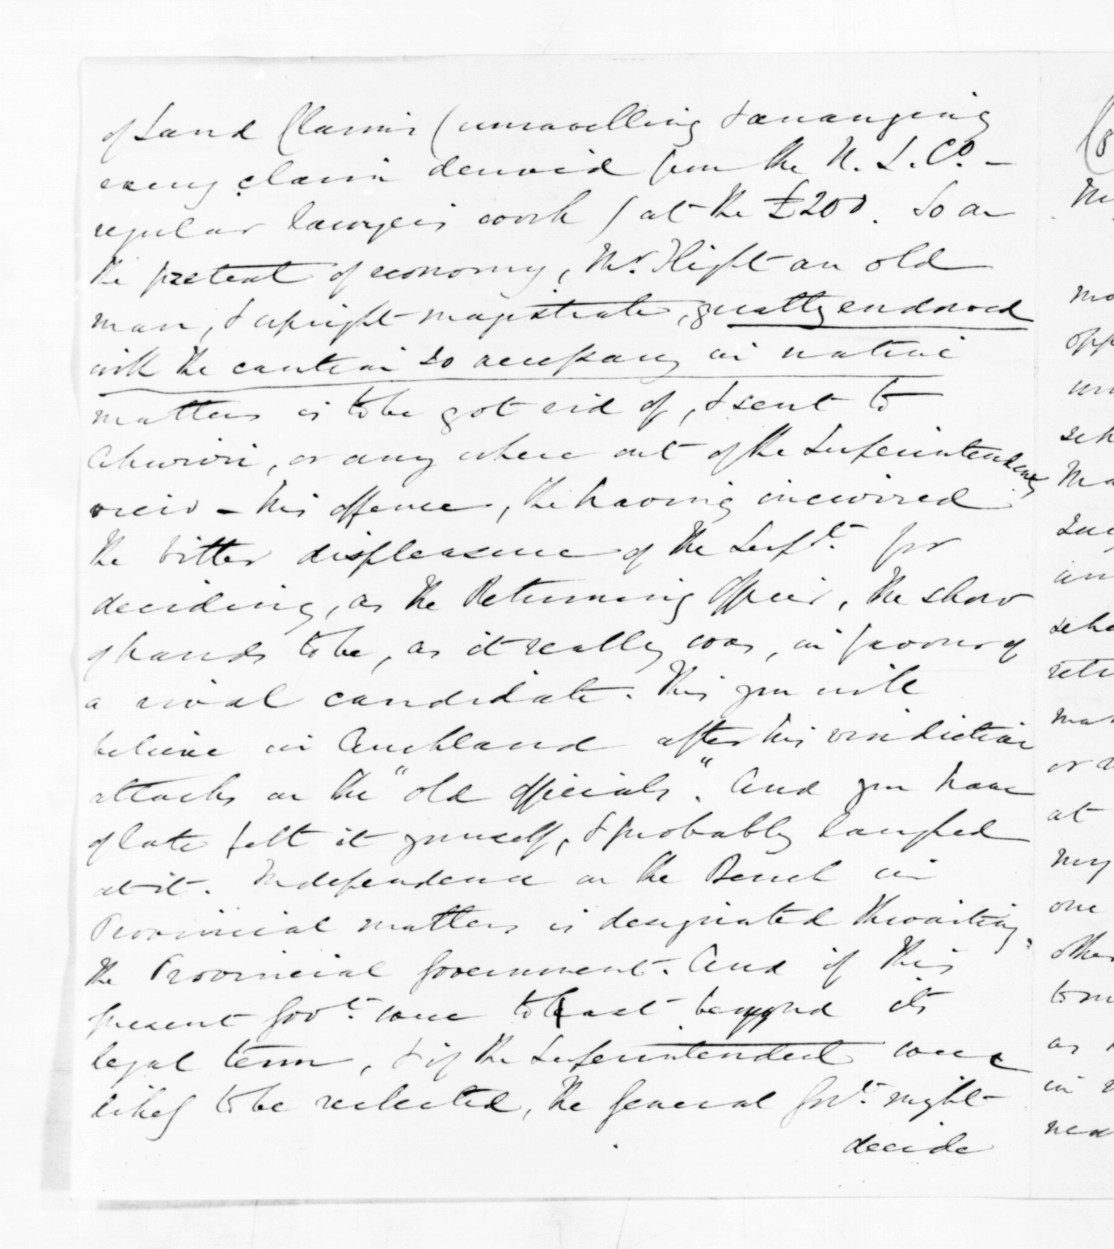 of Land Claims (unravelling & arranging
every claim derived from the N. Z. Co. –
regular lawyers work) at the £200. So on
the pretext of economy, Mr. Flight an old
man, & upright magistrate, greatly endowed
with the caution so necessary in native
matters is to be got rid of, & sent to
Ahuriri, or any where out of the Superintendents
view – his offence, the having incurred
the bitter displeasure of the Supt. for
deciding, as the Returning Officer, the show
of hands to be, as it really was, in favour of
a rival candidate. This you will
believe in Auckland after his vindictive
attacks on the "old officials". And you have
of late felt it yourself, & probably laughed
at it. Independence on the Bench in
Provincial matters is designated thwarting
the Provincial Government. And if this
present Govt. were to last beyond its
legal term, & if the Superintendent were
likely to be reelected, the General Govt. might
decide